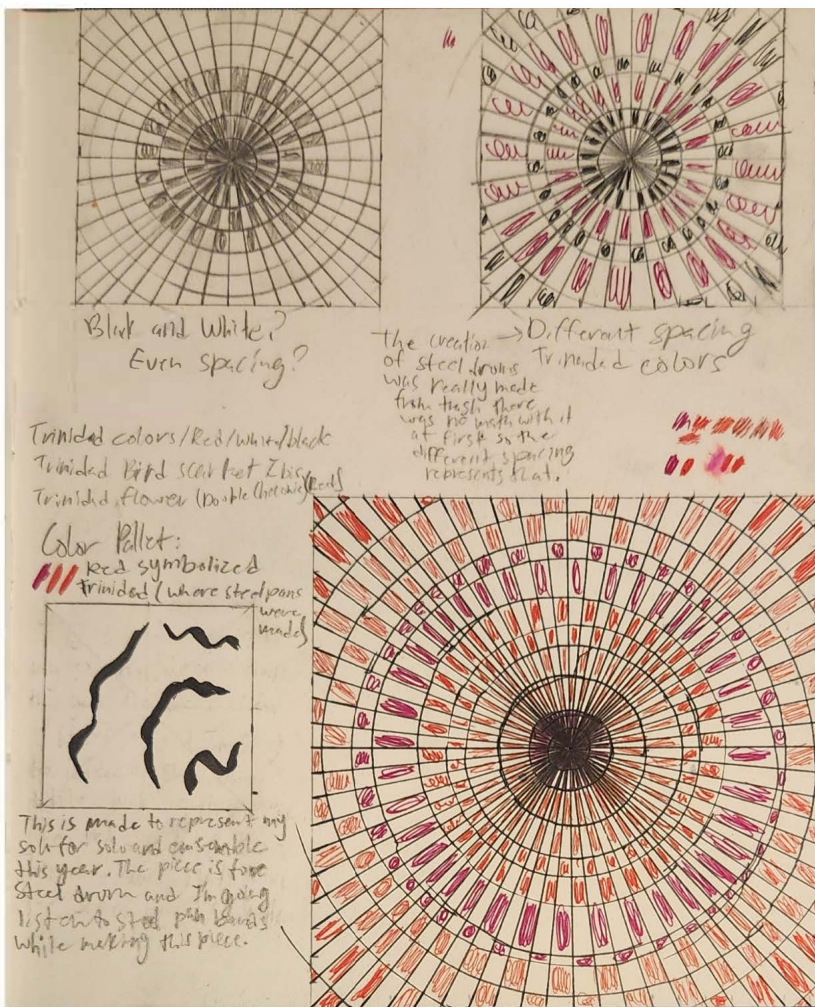 Black and White?
Even spacing?
The creation
of steel drums
was really made
from trash there
was no math with it
at first so the
different spacing
represents that.
→ Different spacing
Trinidad colors
Trinidad colors/Red/White/black
Trinidad Bird scarket Ibis
Trinidad flower (Double Chaconia)(Red)
Color Pallet:
Red symbolized
Trinidad (where steel pans
were
made)
This is made to represent my
solo for solo and ensamble
this year. The piece is fore
Steel drum and I'm going
listen to steel pan bands
while making this piece.